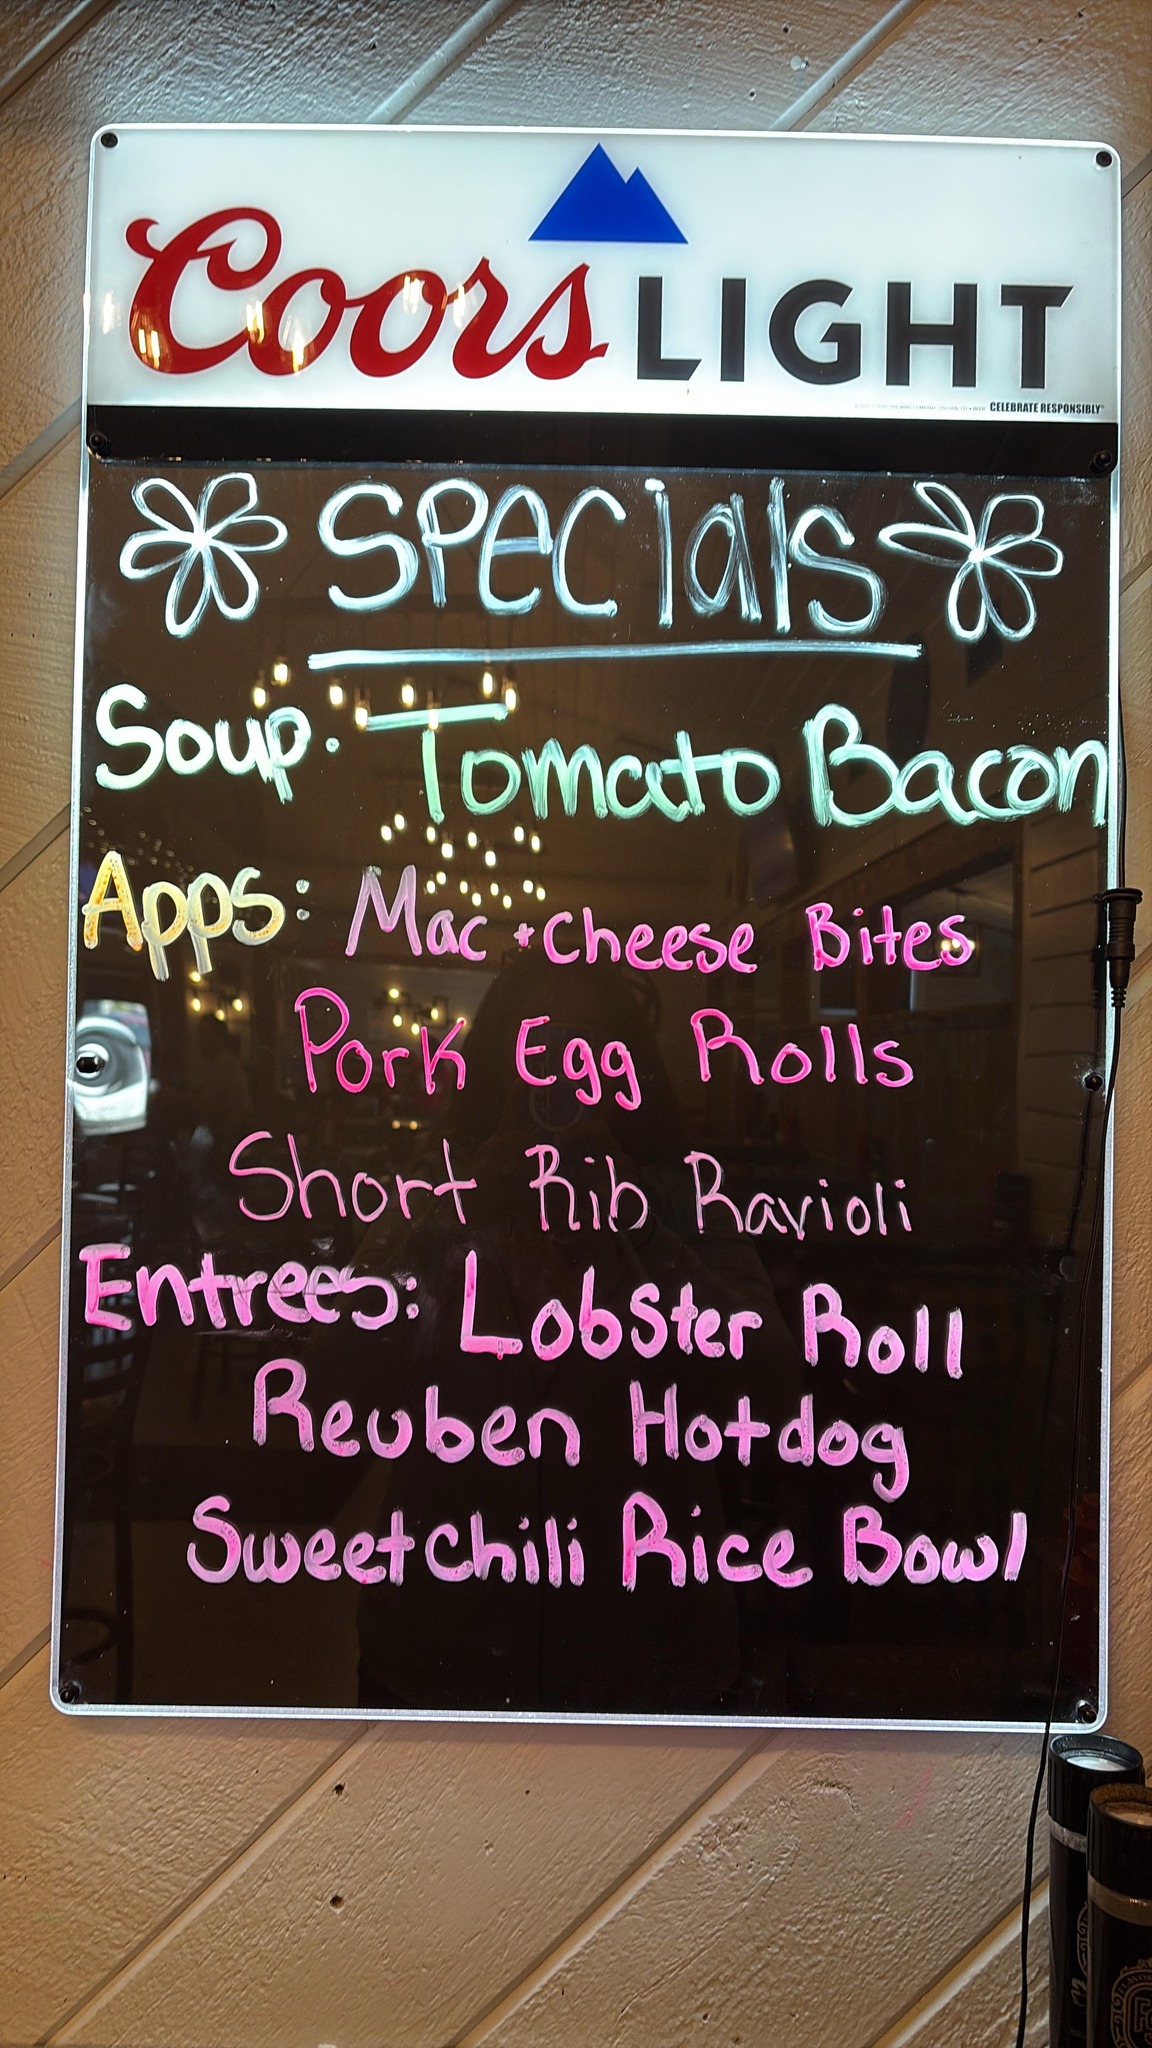 Coors LIGHT
CELEBRATE RESPONSIBLY
Specials
Soup. Tomato Bacon
Apps: Mac + Cheese Bites
Pork Egg Rolls
Short Rib Ravioli
Entrees: Lobster Roll
Reuben Hotdog
Sweet chili Rice Bowl